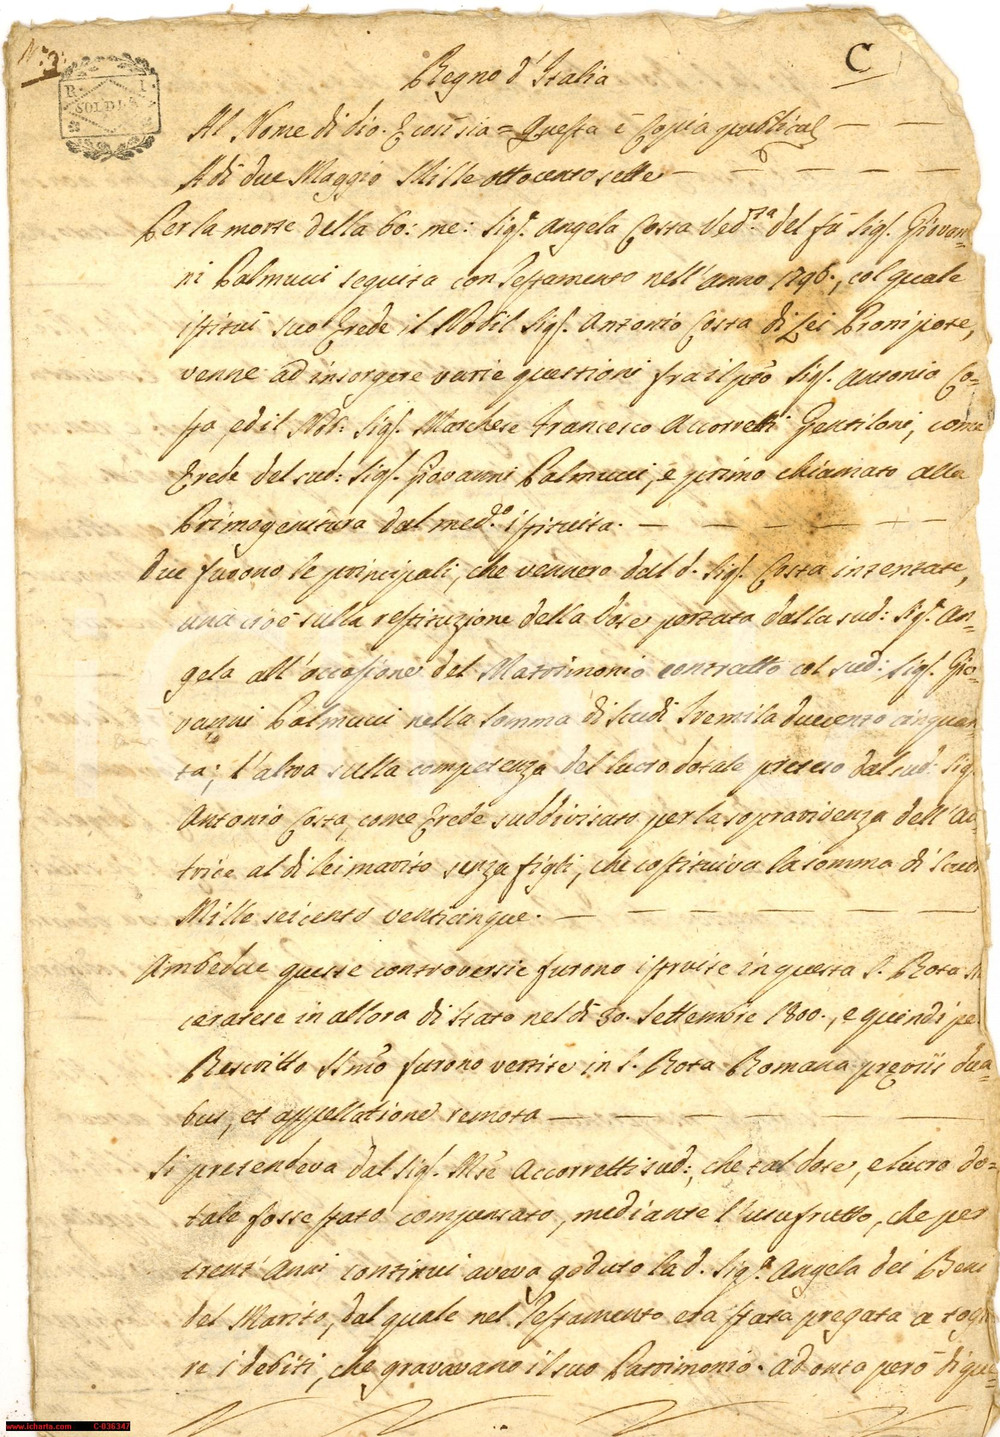 N.° 3.
C
R I
SOLDI
2 2
Regno d'Italia
Al Nome di Dio. E così sia = Questa è Copia publica
A dì due Maggio Mille ottocento sette
Per la morte della bo: me: Sig.ª Angela Costa Ved.va del fù Sig. Giovan=
ni Palmucci seguita con Testamento nell'anno 1796., col quale
istituì suo Erede il Nobil Sig. Antonio Costa di Lei Pronipote,
venne ad insorgere varie questioni fra il pto Sig. Antonio Co=
sta, ed il Nob: Sig. Marchese Francesco Accorretti Gentiloni, come
Erede del sud: Sig. Giovanni Palmucci, e primo chiamato alla
Primogenitura dal med.º istituita.
Due furono le principali, che vennero dal d. Sig. Costa intentate,
una cioè sulla restituzione della Dote portata dalla sud: Sig.ª An=
gela all'occasione del Matrimonio contratto col sud: Sig. Gio=
vanni Palmucci nella somma di Scudi Tremila duecento cinquan=
ta; l'altra sulla competenza del lucro dotale preteso dal sud: Sig.
Antonio Costa, come Erede suddivisato per la sopravidenza dell'Au=
trice al di lei marito senza figli, che costituiva la somma di Scudi
Mille seicento venticinque.
Ambedue queste controversie furono istruite in questa S. Rota M
ceratese in allora di Stato nel dì 30. Settembre 1800., e quindi pe
Rescritto SSmo furono vertite in S. Rota Romana previis dua=
bus, et appellatione remota
Si pretendeva dal Sig. Mse Accorretti sud:, che tal dote, e lucro do=
tale fosse stato compensato, mediante l'usufrutto, che per
trent'Anni continui aveva goduto la d. Sig.ª Angela dei Beni
del Marito, dal quale nel Testamento era stata pregata a toglie
re i debiti, che gravavano il suo Patrimonio. ad onta però di que=
www.icharta.com C-036347